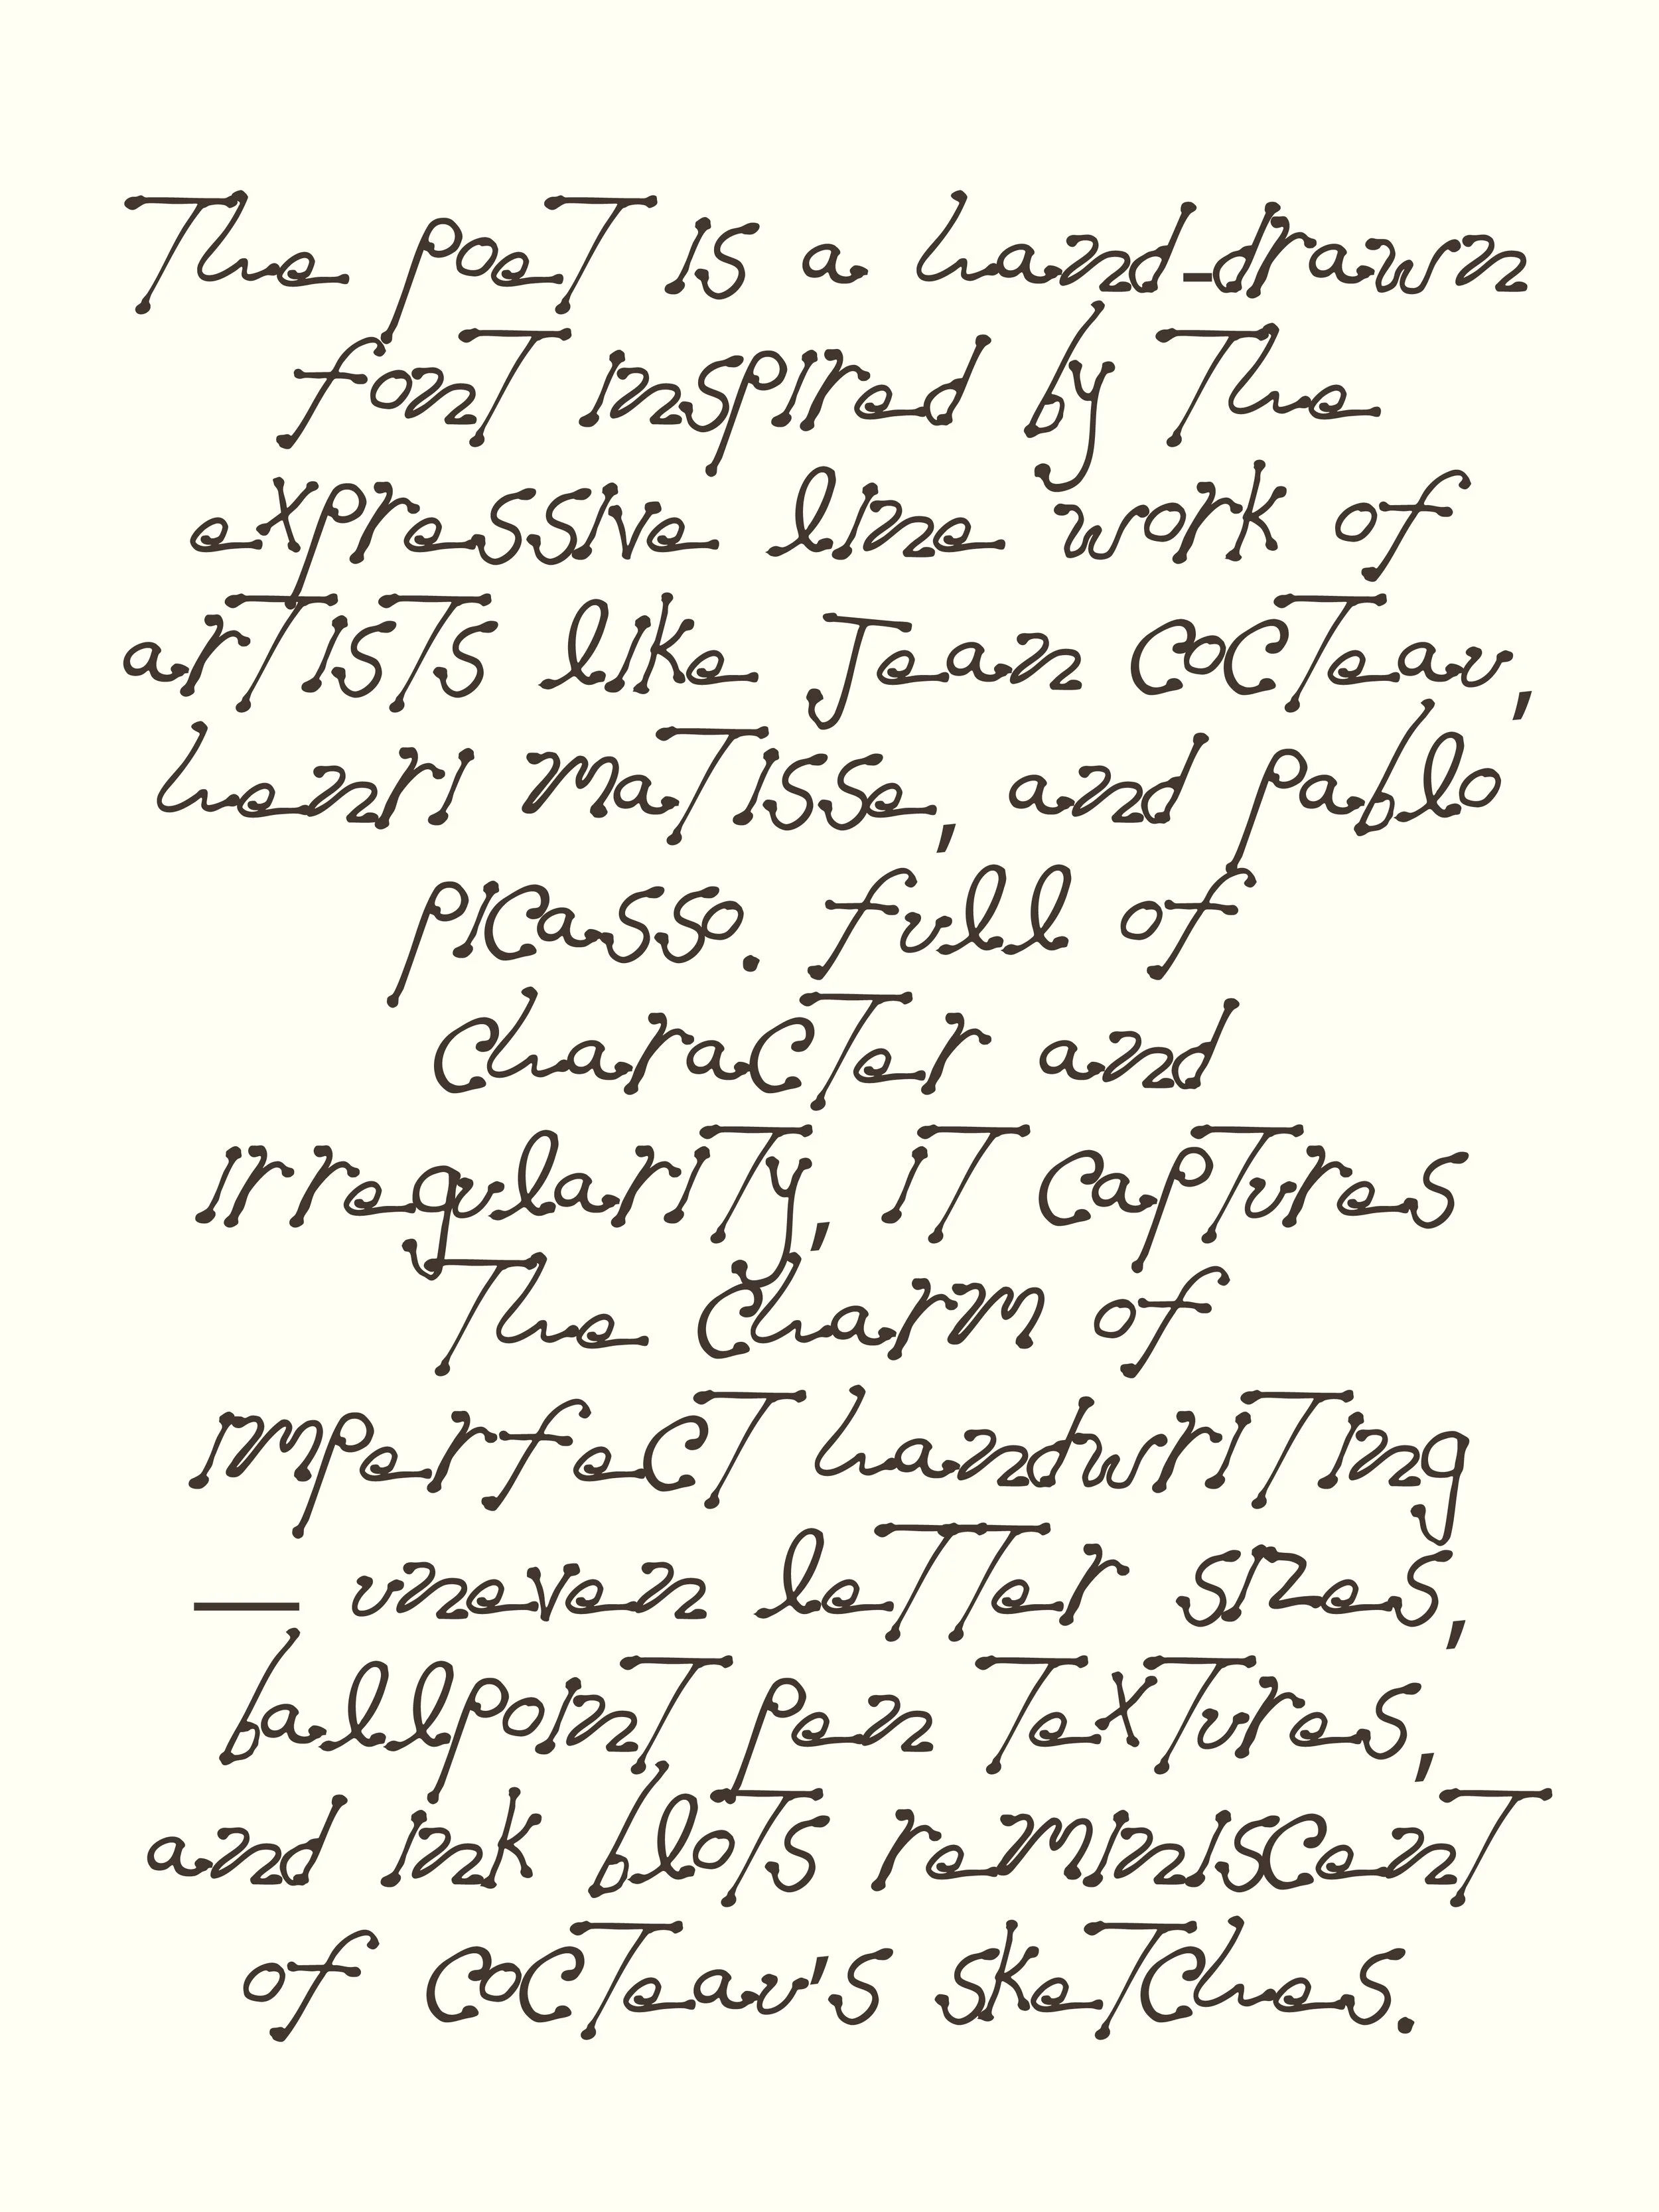 The poeT is a hand-drawn
fonT inspired by The
expressive line work of
arTisTs like Jean cocTeau,
henri maTisse, and pablo
picasso. full of
characTer and
irregulariTy, iT capTures
The charm of
imperfecT handwriTing
— uneven leTTer sizes,
ballpoinT pen TexTures,
and ink bloTs reminiscenT
of cocTeau's skeTches.